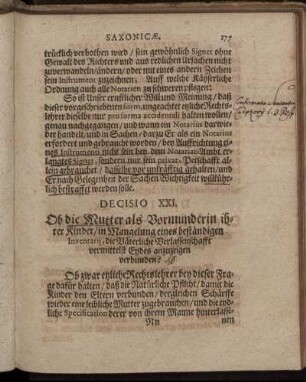 SAXONICÆ. 277
trücklich verbothen ward / sein gewöhnlich Signet ohne
Gewalt des Richters und aus redlichen Ursachen nicht
zuverwandeln / ändern / oder mit eines andern Zeichen
sein Instrument zuzeichnen; Auff welche Käyserliche
Ordnung auch alle Notarien zu schweren pflegen:
So ist Unser ernstlicher Will und Meinung / daß
dieser vorgeschriebenen form, ungeachtet etzliche Rechts-
lehrer dieselbe nur pro forma accidentali halten wollen /
genau nachgegangen / und wann ein Notarius darwie-
der handeln und in Sachen / darzu Er als ein Notarius
erfordert und gebraucht worden / bey Auffrichtung ei-
nes Instruments nicht sein bey dem Notariat-Ambt er-
langtes Signet / sondern nur sein privat-Petschafft al-
lein gebrauchet / dasselbe vor unkräfftig gehalten / und
Er nach Gelegenheit der Sachen Wichtigkeit willkühr-
lich bestraffet werden solle.
DECISIO XXI.
Ob die Mutter als Vormünderin ih-
rer Kinder / in Mangelung eines beständigen
Inventarij, die Väterliche Verlassenschafft
vermittelst Eydes anzuzeigen
verbunden?
Ob zwar etzliche Rechtslehrer bey dieser Fra-
ge dafür halten / daß die Natürliche Pflicht / damit die
Kinder den Eltern verbunden / dergleichen Schärffe
wieder eine leibliche Mutter zugebrauchen / und die eyd-
liche Specification derer von ihrem Manne hinterlasse-
Nn nen